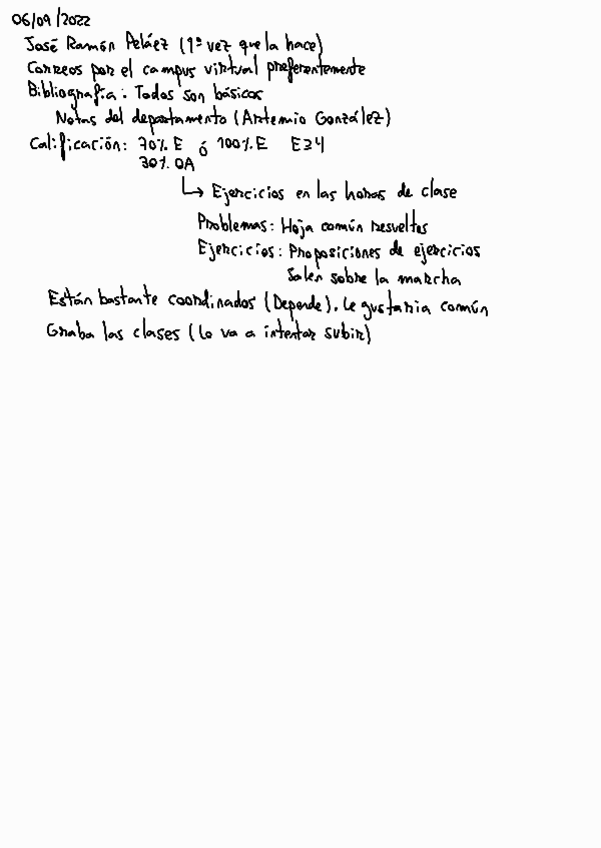 06/09/2022
José Ramón Peláez (1ª vez que la hace)
Correos por el campus virtual preferentemente
Bibliografía: Todos son básicos
Notas del departamento (Artemio González)
Calificación: 70% E ó 100% E E≥4
30% OA
↳ Ejercicios en las horas de clase
Problemas: Hoja común resueltos
Ejercicios: Proposiciones de ejercicios
Salen sobre la marcha
Están bastante coordinados (Depende). Le gustaria común
Graba las clases (Lo va a intentar subir)